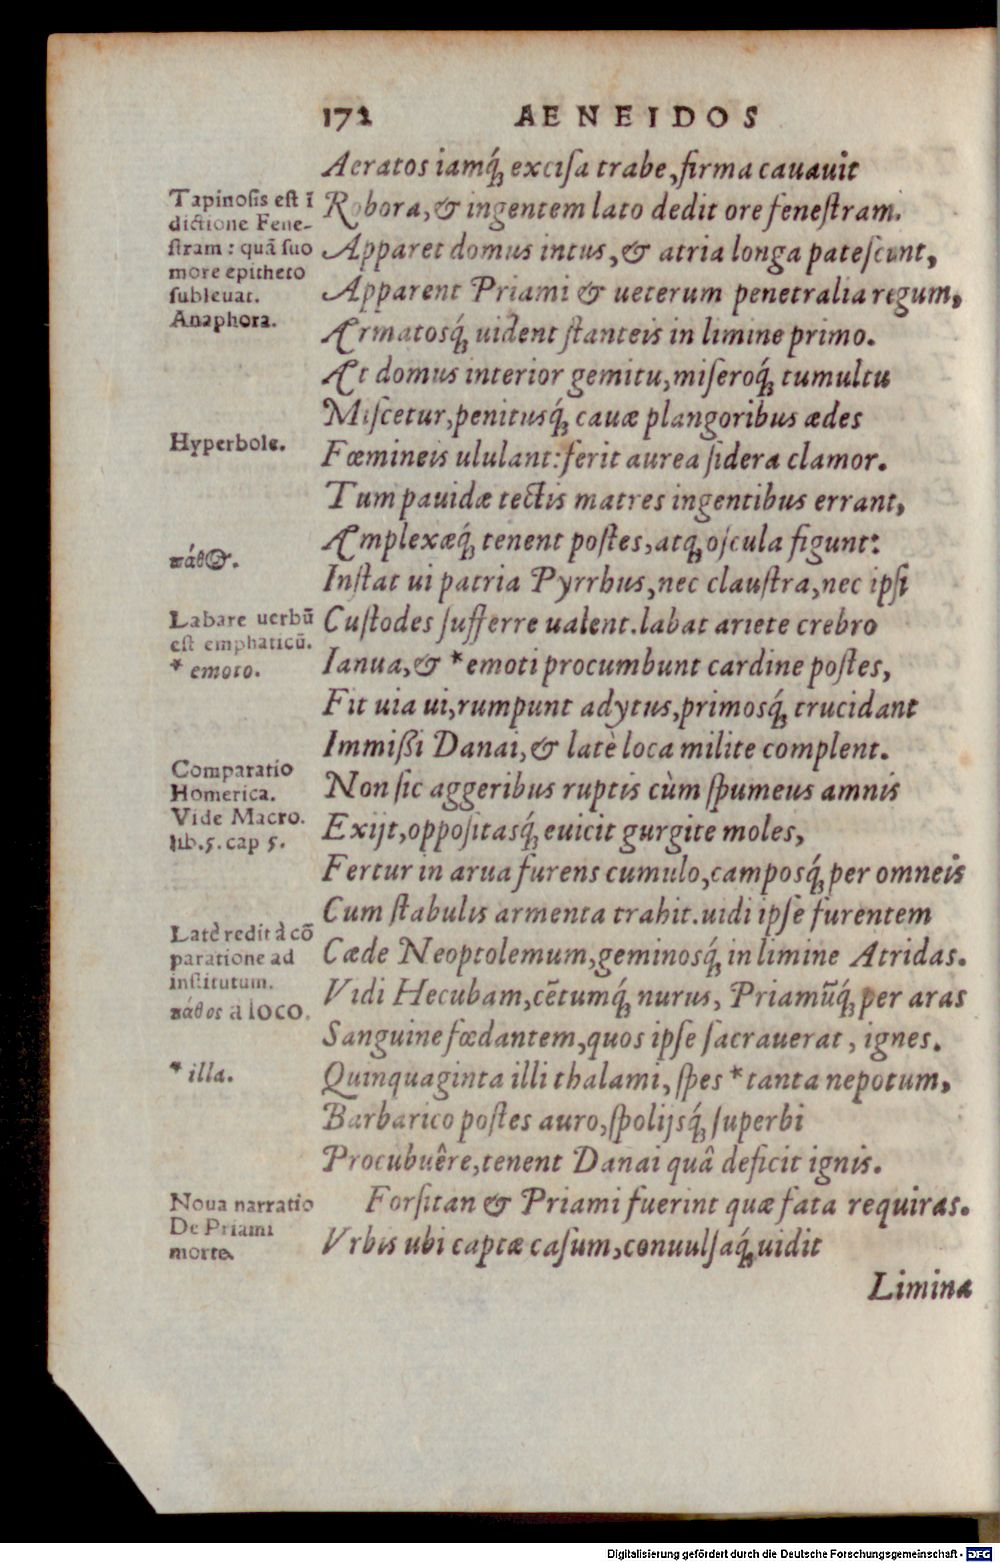 172 AENEIDOS
Aeratos iamq́; exciſa trabe, firma cauauit
Robora, & ingentem lato dedit ore feneſtram.
Apparet domus intus, & atria longa pateſcunt,
Apparent Priami & ueterum penetralia regum,
Armatosq́; uident ſtanteis in limine primo.
At domus interior gemitu, miſeroq́; tumultu
Miſcetur, penitusq́; cauæ plangoribus ædes
Fœmineis ululant: ferit aurea ſidera clamor.
Tum pauidæ tectis matres ingentibus errant,
Amplexæq́; tenent poſtes, atq; oſcula figunt:
Inſtat ui patria Pyrrhus, nec clauſtra, nec ipſi
Cuſtodes ſufferre ualent. labat ariete crebro
Ianua, & *emoti procumbunt cardine poſtes,
Fit uia ui, rumpunt adytus, primosq́; trucidant
Immißi Danai, & latè loca milite complent.
Non ſic aggeribus ruptis cùm ſpumeus amnis
Exijt, oppoſitasq́; euicit gurgite moles,
Fertur in arua furens cumulo, camposq́; per omneis
Cum ſtabulis armenta trahit. uidi ipſe furentem
Cæde Neoptolemum, geminosq́; in limine Atridas.
Vidi Hecubam, cẽtumq́; nurus, Priamũq́; per aras
Sanguine fœdantem, quos ipſe ſacrauerat, ignes.
Quinquaginta illi thalami, ſpes *tanta nepotum,
Barbarico poſtes auro, ſpolijsq́; ſuperbi
Procubuêre, tenent Danai quâ deficit ignis.
Forſitan & Priami fuerint quæ fata requiras.
Vrbis ubi captæ caſum, conuulſaq́; uidit
Limina
Tapinoſis eſt ĩ
dictione Fene-
ſtram: quã ſuo
more epitheto
ſubleuat.
Anaphora.
Hyperbole.
πάθος.
Labare uerbũ
eſt emphaticũ.
* emoto.
Comparatio
Homerica.
Vide Macro.
lib.5. cap 5.
Latè redit à cõ
paratione ad
inſtitutum.
πάθος a loco.
* illa.
Noua narratio
De Priami
morte.
Digitalisierung gefördert durch die Deutsche Forschungsgemeinschaft - DFG